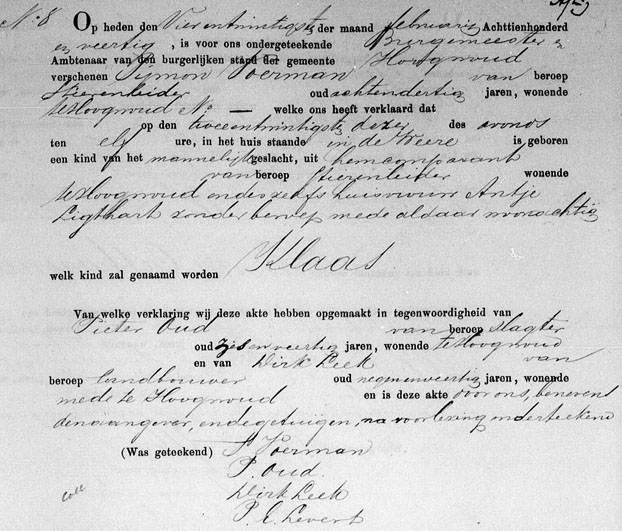 N.º 8
Op heden den Vierentwintigste der maand februarij Achttienhonderd
en veertig, is voor ons ondergeteekende Burgemeester en
Ambtenaar van den burgerlijken stand der gemeente Hoogwoud
verschenen Sijmon Voerman van beroep
oud achtendertig jaren, wonende
te Hoogwoud N.º — welke ons heeft verklaard dat
op den tweeentwintigste dezer des avonds
ten elf ure, in het huis staande in de Weere is geboren
een kind van het mannelijk geslacht, uit hem comparant
van beroep wonende
te Hoogwoud en deszelfs huisvrouw Antje
Ligthart zonder beroep mede aldaar woonachtig
welk kind zal genaamd worden Klaas.
Van welke verklaring wij deze akte hebben opgemaakt in tegenwoordigheid van
Pieter Oud van beroep slagter
oud zesenveertig jaren, wonende te Hoogwoud
en van Dirk Leek van
beroep landbouwer oud negenenveertig jaren, wonende
mede te Hoogwoud en is deze akte door ons, benevens
den aangever, en de getuigen, na voorlezing onderteekend
(Was geteekend) S Voerman
P. Oud.
Dirk Leek
P. C. Levert
Coll